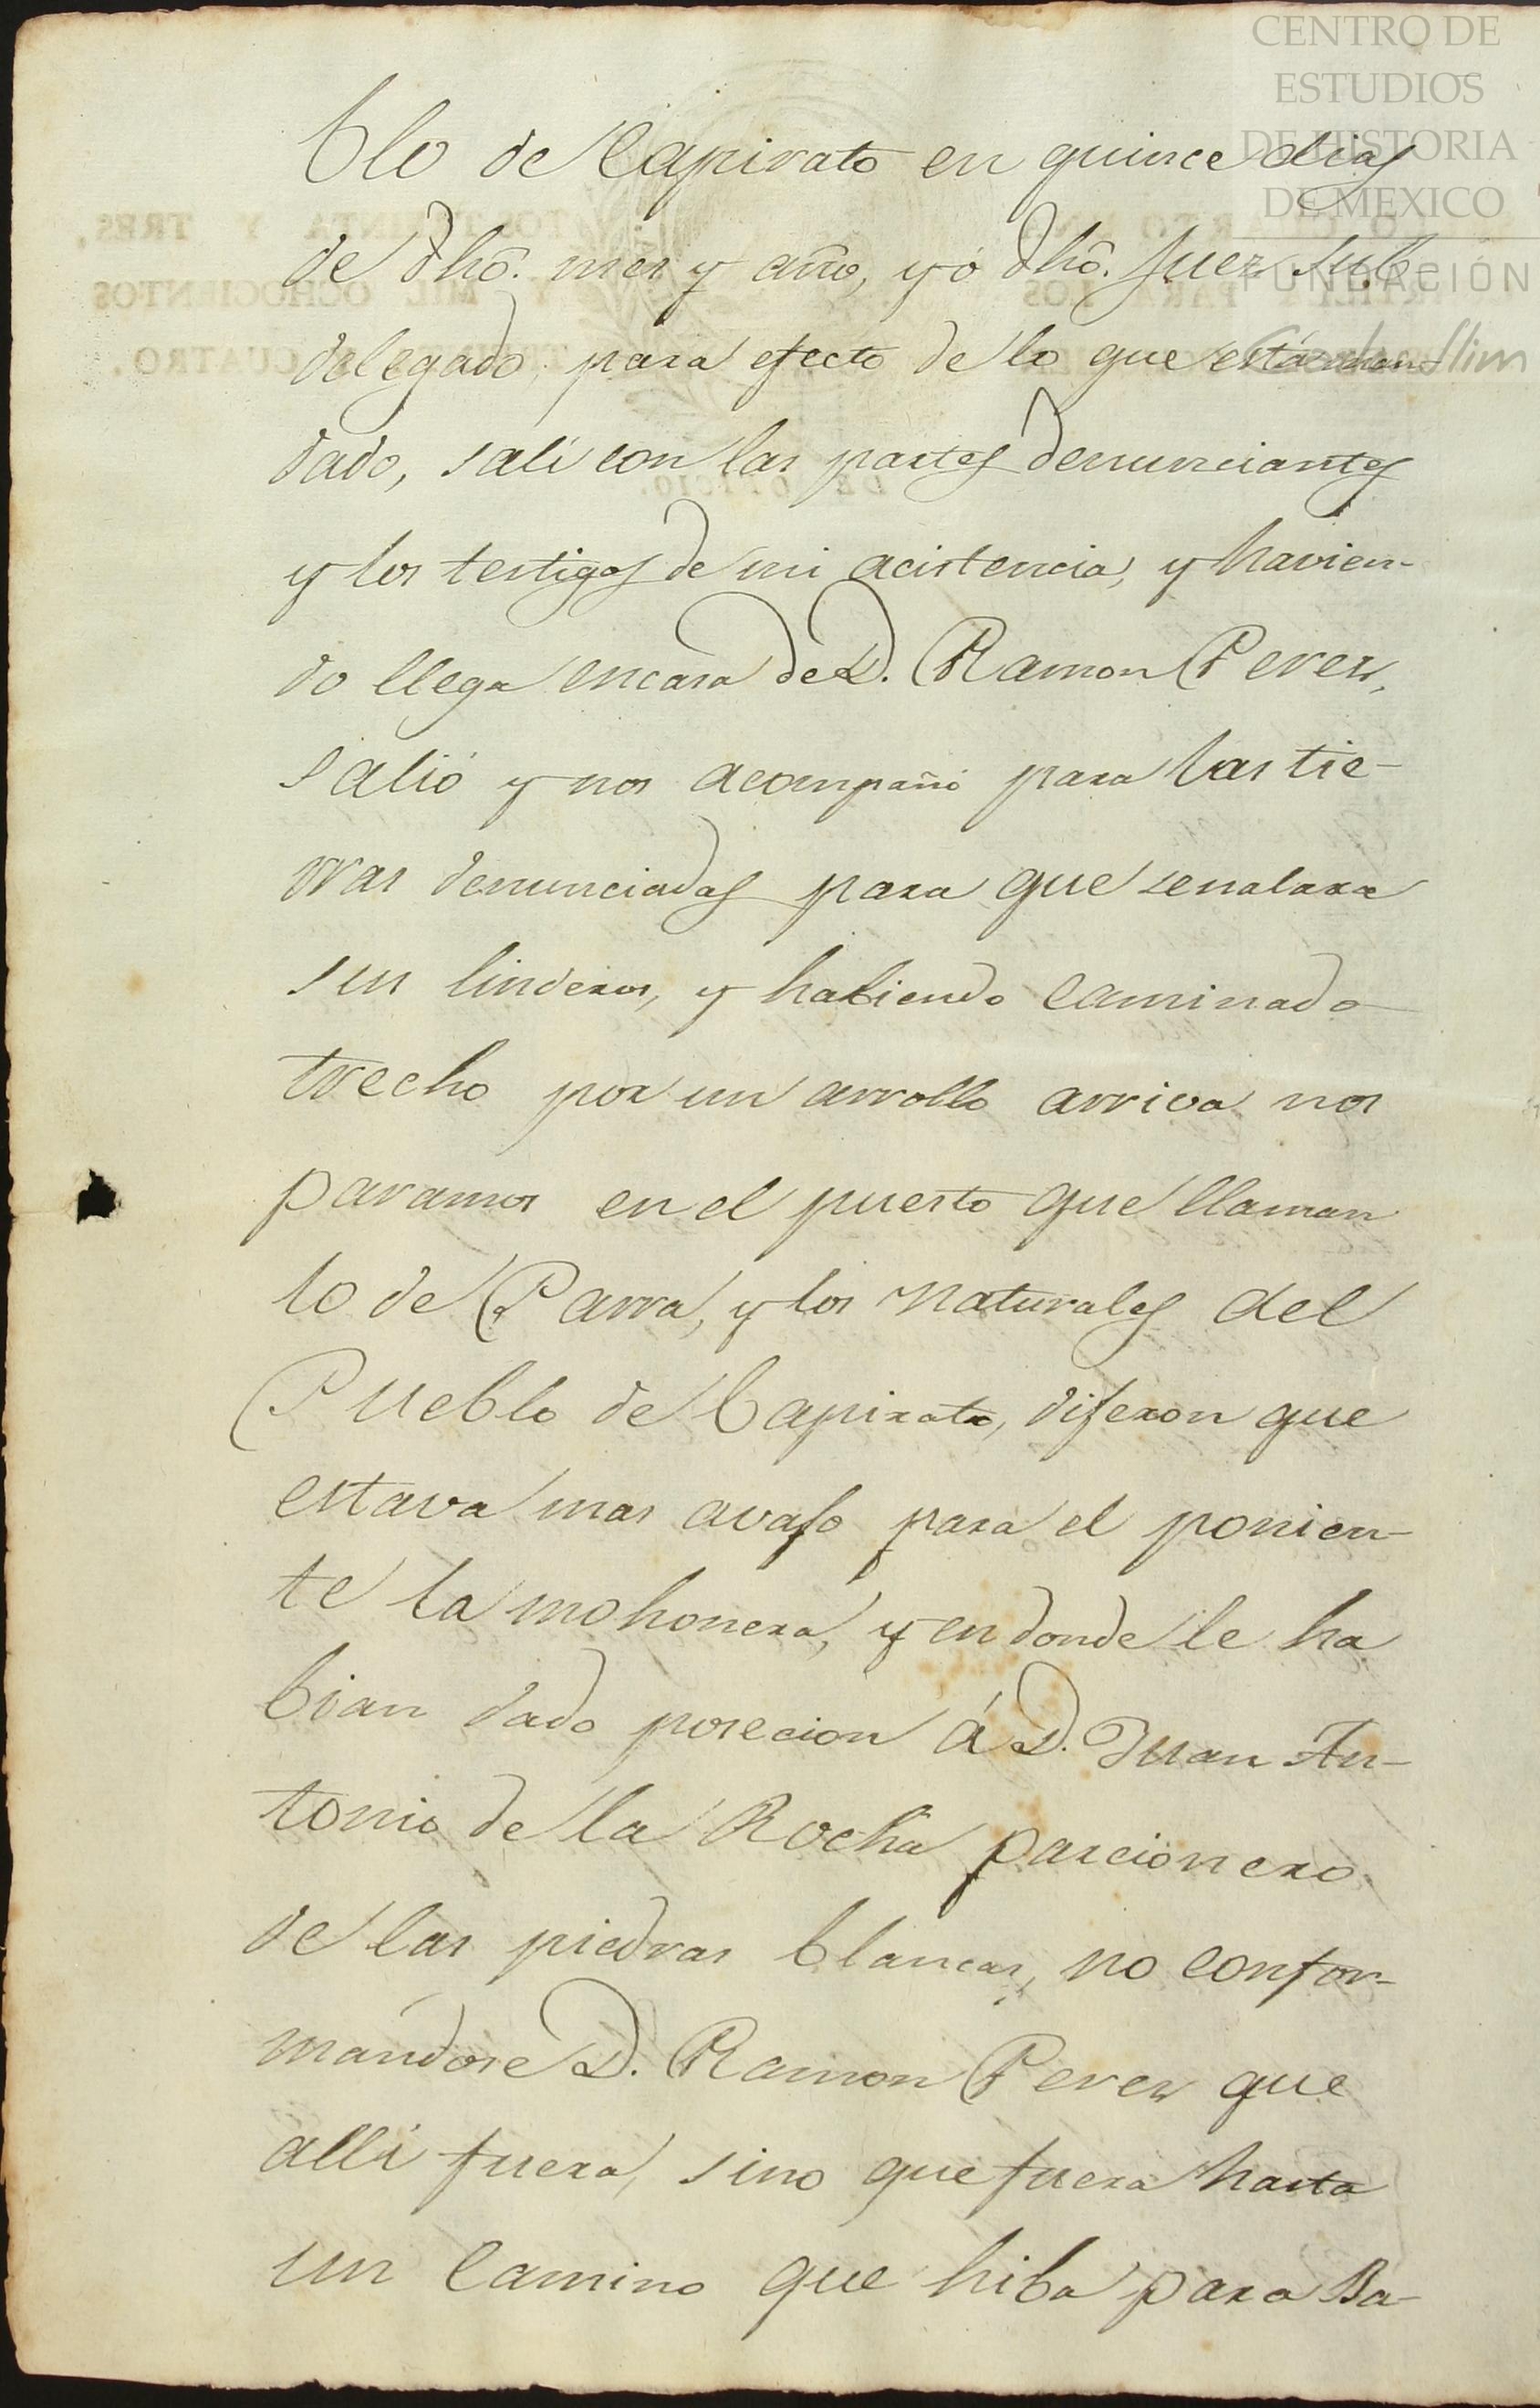 CENTRO DE
ESTUDIOS
DE HISTORIA
DE MEXICO
FUNDACIÓN
Carlos Slim
blo de Capirato en quince dias
de dhô. mes y año, yó dhô. Juez Sub-
delegado, para efecto de lo que está man-
dado, sali con las partes denunciantes
y los testigos de mi acistencia, y havien-
do llega encasa de D. Ramon Perez,
salió y nos acompañó para las tie-
rras denunciadas para que senalara
sus linderos, y habiendo caminado
trecho por un arrollo arriva nos
paramos en el puesto que llaman
lo de Parra, y los Naturales del
Pueblo de Capirato, dijeron que
estava mas avajo para el ponien-
te la mohonera, y en donde le ha
bian dado posecion á D. Juan An-
tonio de la Rocha parcionero
de las piedras blancas, no confor-
mandose D. Ramon Perez que
alli fuera, sino que fuera hasta
un camino que hiba para Ba-